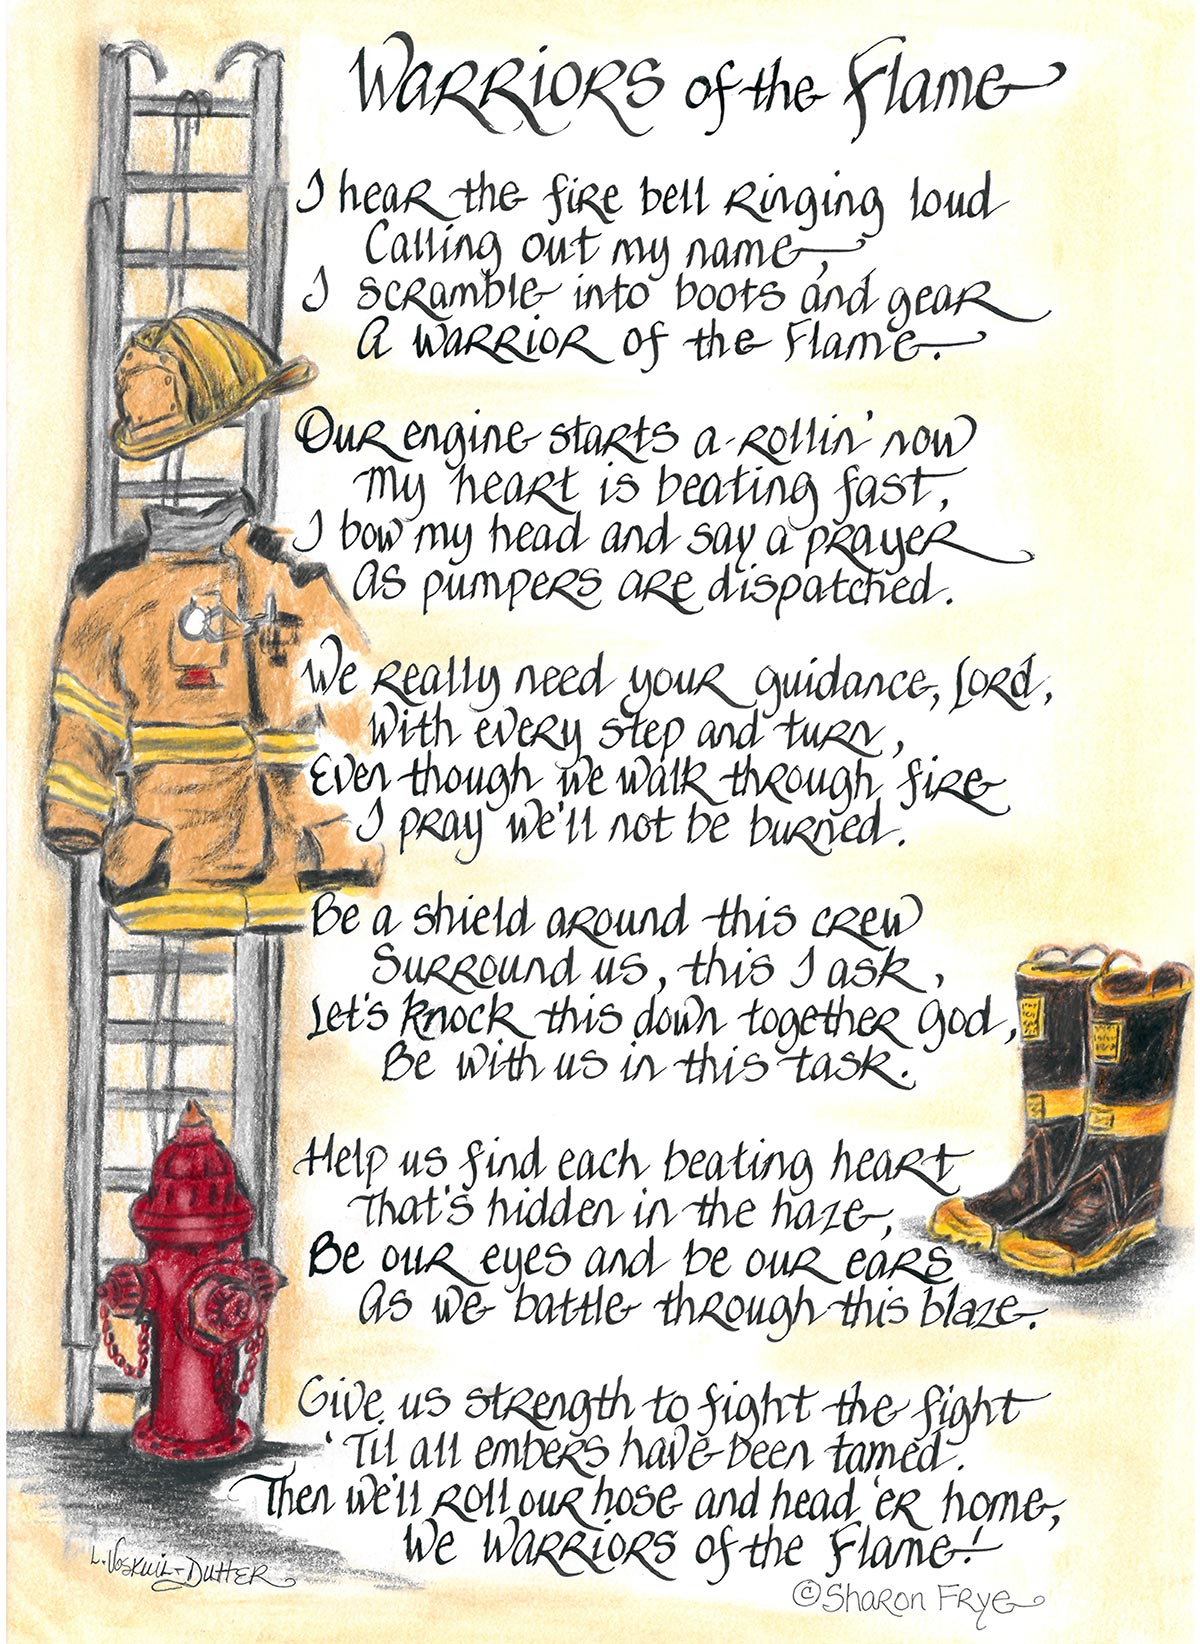 Warriors of the Flame
I hear the fire bell ringing loud
Calling out my name,
I scramble into boots and gear
A warrior of the Flame.
Our engine starts a-rollin' now
My heart is beating fast,
I bow my head and say a prayer
As pumpers are dispatched.
We really need your guidance, Lord,
With every step and turn,
Even though we walk through fire
I pray we'll not be burned.
Be a shield around this crew
Surround us, this I ask,
Let's knock this down together God,
Be with us in this task.
Help us find each beating heart
That's hidden in the haze,
Be our eyes and be our ears
As we battle through this blaze.
Give us strength to fight the fight
'Til all embers have been tamed.
Then we'll roll our hose and head 'er home,
We Warriors of the Flame!
L. Voskuil-Dutter
©Sharon Frye